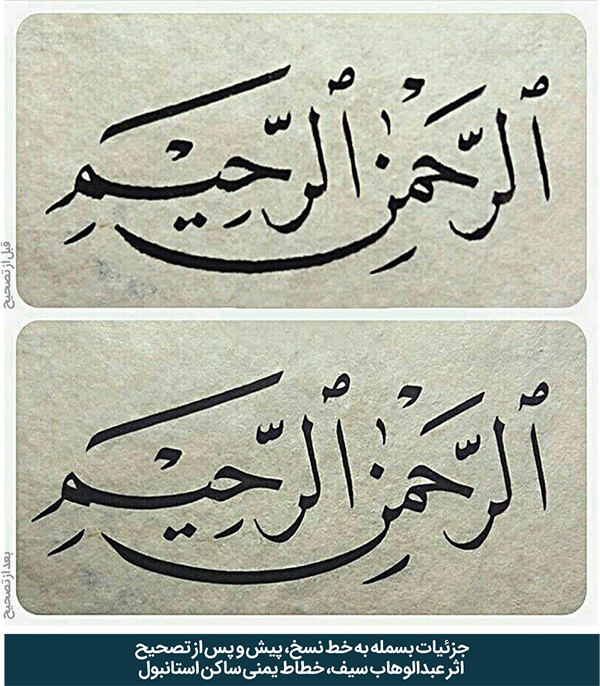 ٱلرَّحْمٰنِ ٱلرَّحِيْمِ
قبل از تصحیح
ٱلرَّحْمٰنِ ٱلرَّحِيْمِ
بعد از تصحیح
جزئیات بسمله به خط نسخ، پیش و پس از تصحیح
اثر عبدالوهاب سیف، خطاط یمنی ساکن استانبول